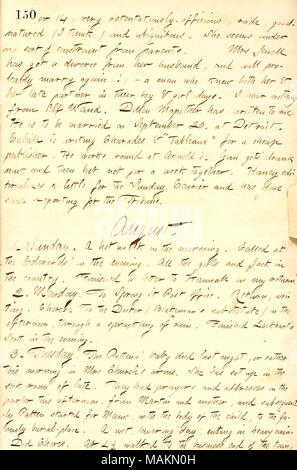 150
or 14, very ostentatiously officious, rude good
natured (I think,) and ubiquitous. She seems under
no sort of control from parents. Mrs Jewell
has got a divorce from her husband, and will pro
bably marry again
a man who knew both her &
her late partner in their boy & girl days. I hear nothing
from Alf Waud. Dillon Mapother has written to me.
He is to be married on September 20, at Detroit.
Cahill is writing Charades & "Tableaux" for a cheap
publisher. He works round at Arnold's. Gunn gets drunk
now and then but not for a week together. Haney edi
torializes a little for the Sunday Courier and has done
some reporting for the Tribune.
August.
1. Sunday. A hot
in the morning. Called at
the Edwards' in the evening. All the girls and Jack in
the country. Finished a letter to Hannah in my
2. Monday. To Spring St Post Office. Return, wri
ting. Chores. To the Doctor (Blakeman's substitute) in the
afternoon, through a sprinkling of rain. Finished Lockhart's
Scott in the evening.
3. Tuesday. The Pattens' baby died last night, or rather
this morning in Mrs Church's arms. She has sat up in the
sick room of late. They had prayers and addresses in the
parlor this afternoon, from Martin and another, and subsequent
ly Patten started for Maine, with the body of the child, to the fa
mily burial-place. A hot, lowering day, ending in heavy rain.
Did Chores. At 4½ walked to the business end of the town,
alamy
Image ID: MAKN0H
www.alamy.com